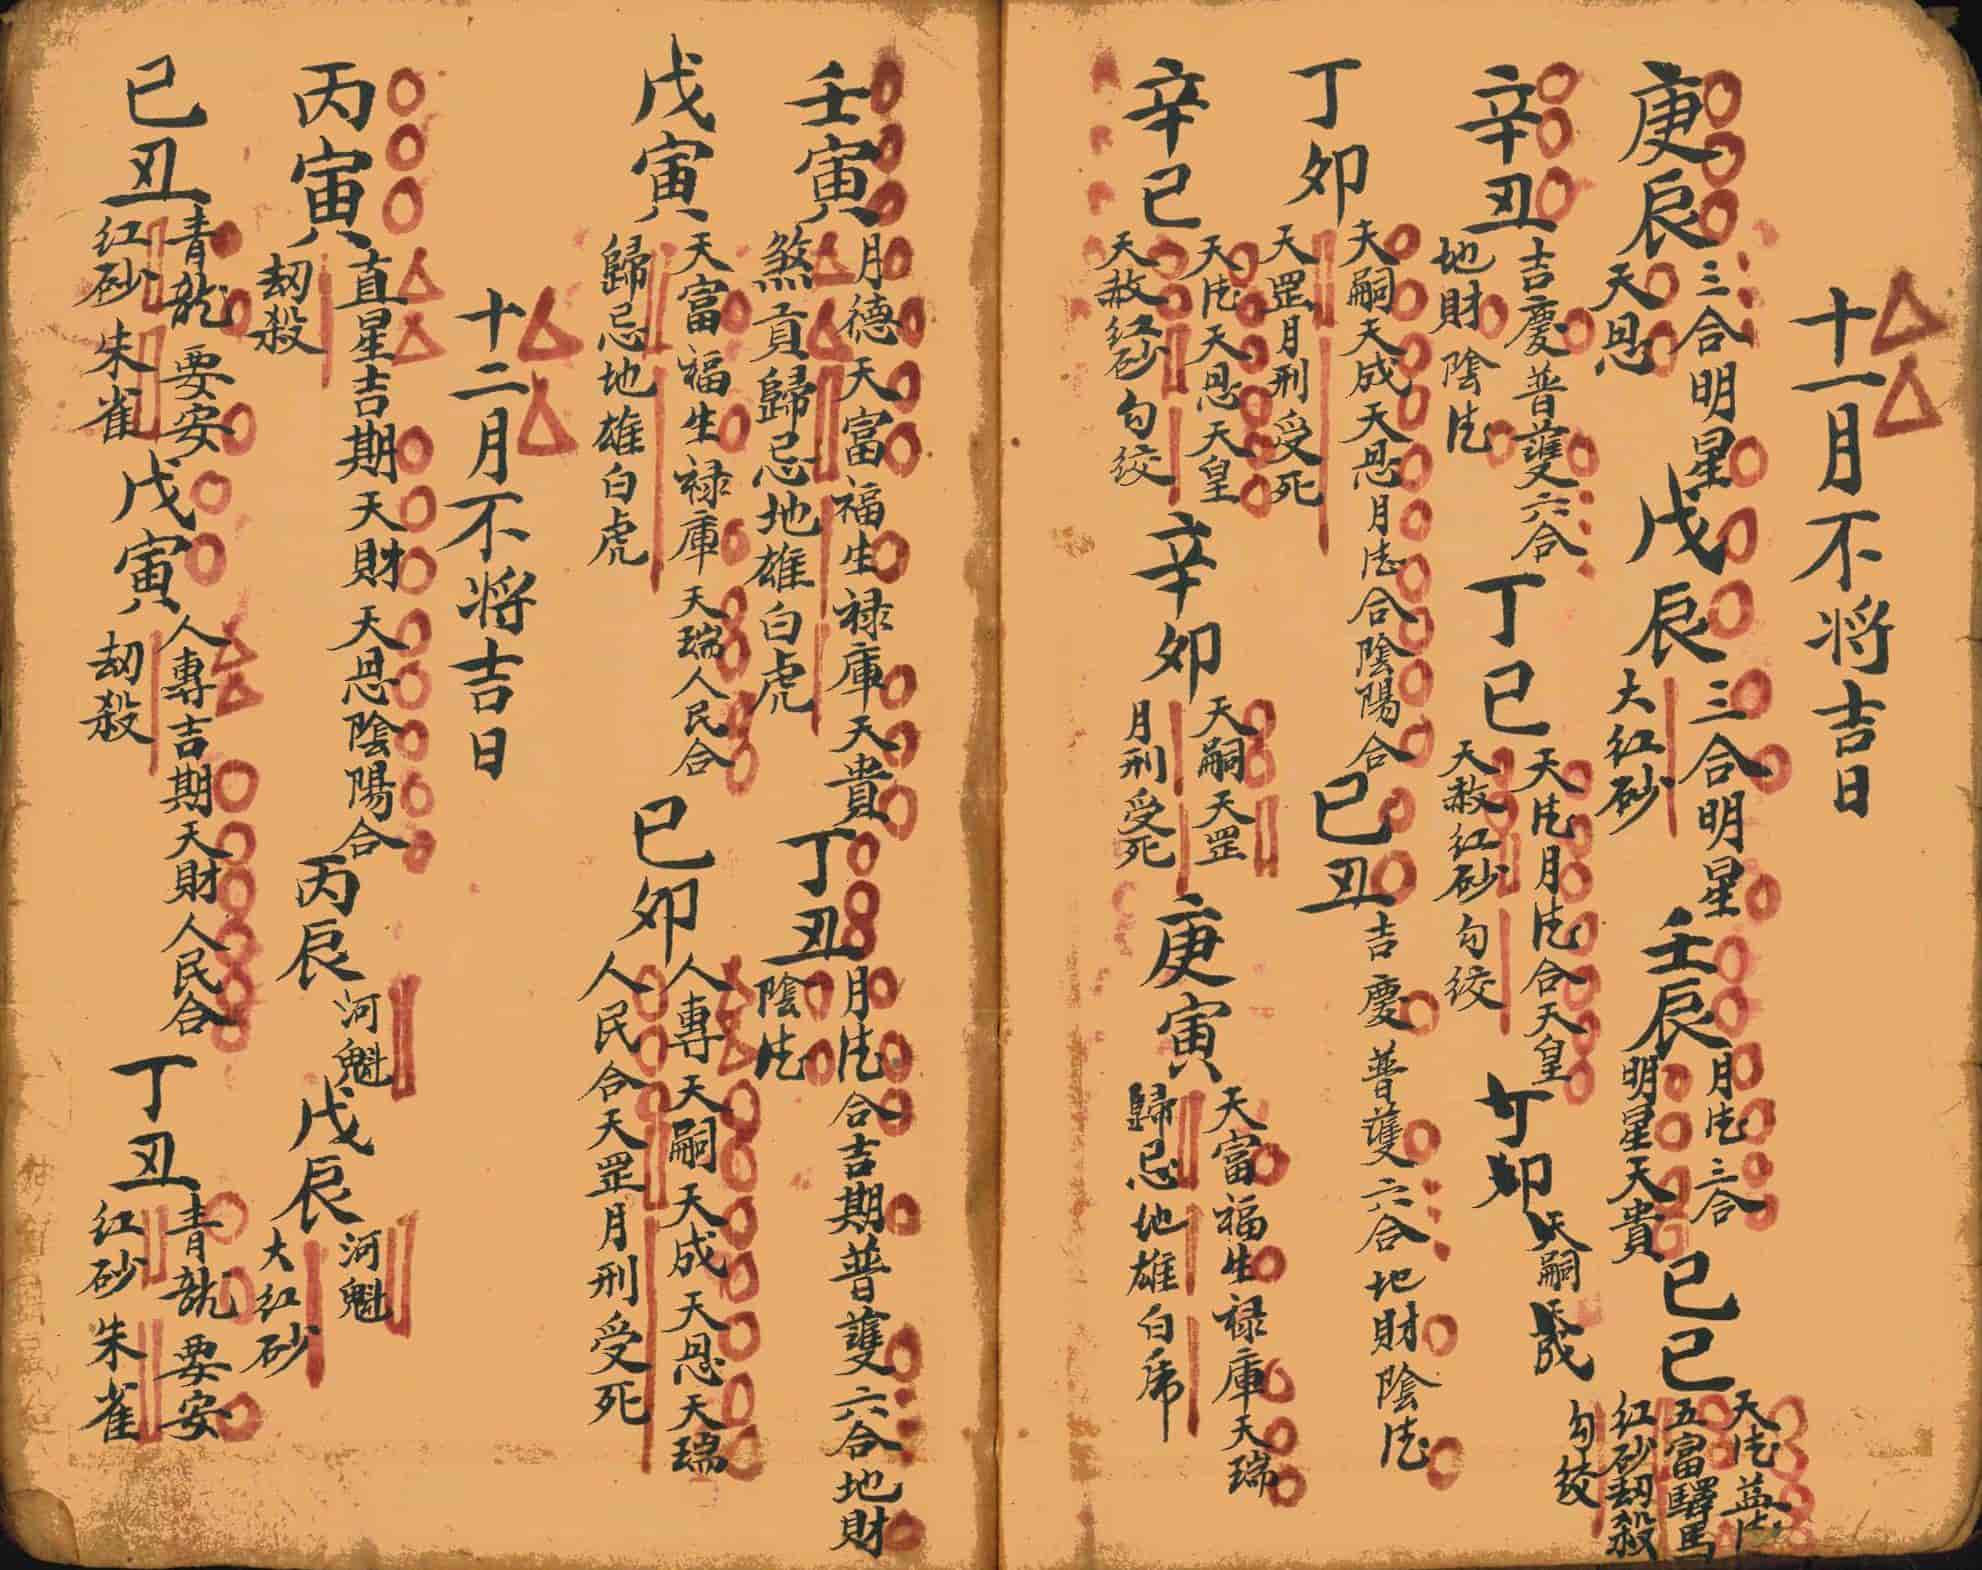 十一月不将吉日
庚辰 三合明星 天恩 戊辰 三合明星 大红砂 壬辰 月法三合 明星天貴 己巳 天法益法 五富驛馬 红砂刼殺 勾绞
辛丑 吉慶普護六合 地財陰法 丁巳 天法月法合天皇 天赦红砂勾绞 丁卯 天嗣天成
丁卯 天嗣天成天恩月法合陰陽合 天罡月刑受死 己丑 吉慶普護六合地財陰法
辛巳 天法天恩天皇 天赦红砂勾绞 辛卯 天嗣天罡 月刑受死 庚寅 天富福生禄庫天瑞 歸忌地雄白虎
壬寅 月德天富福生禄庫天貴 煞貢歸忌地雄白虎 丁丑 月法合吉期普護六合地財 陰法
戊寅 天富福生禄庫天瑞人民合 歸忌地雄白虎 己卯 人專天嗣天成天恩天瑞 人民合天罡月刑受死
十二月不将吉日
丙寅 直星吉期天財天恩陰陽合 刼殺 丙辰 河魁 戊辰 河魁 大红砂
己丑 青龍要安 红砂朱雀 戊寅 人專吉期天財人民合 刼殺 丁丑 青龍要安 红砂朱雀